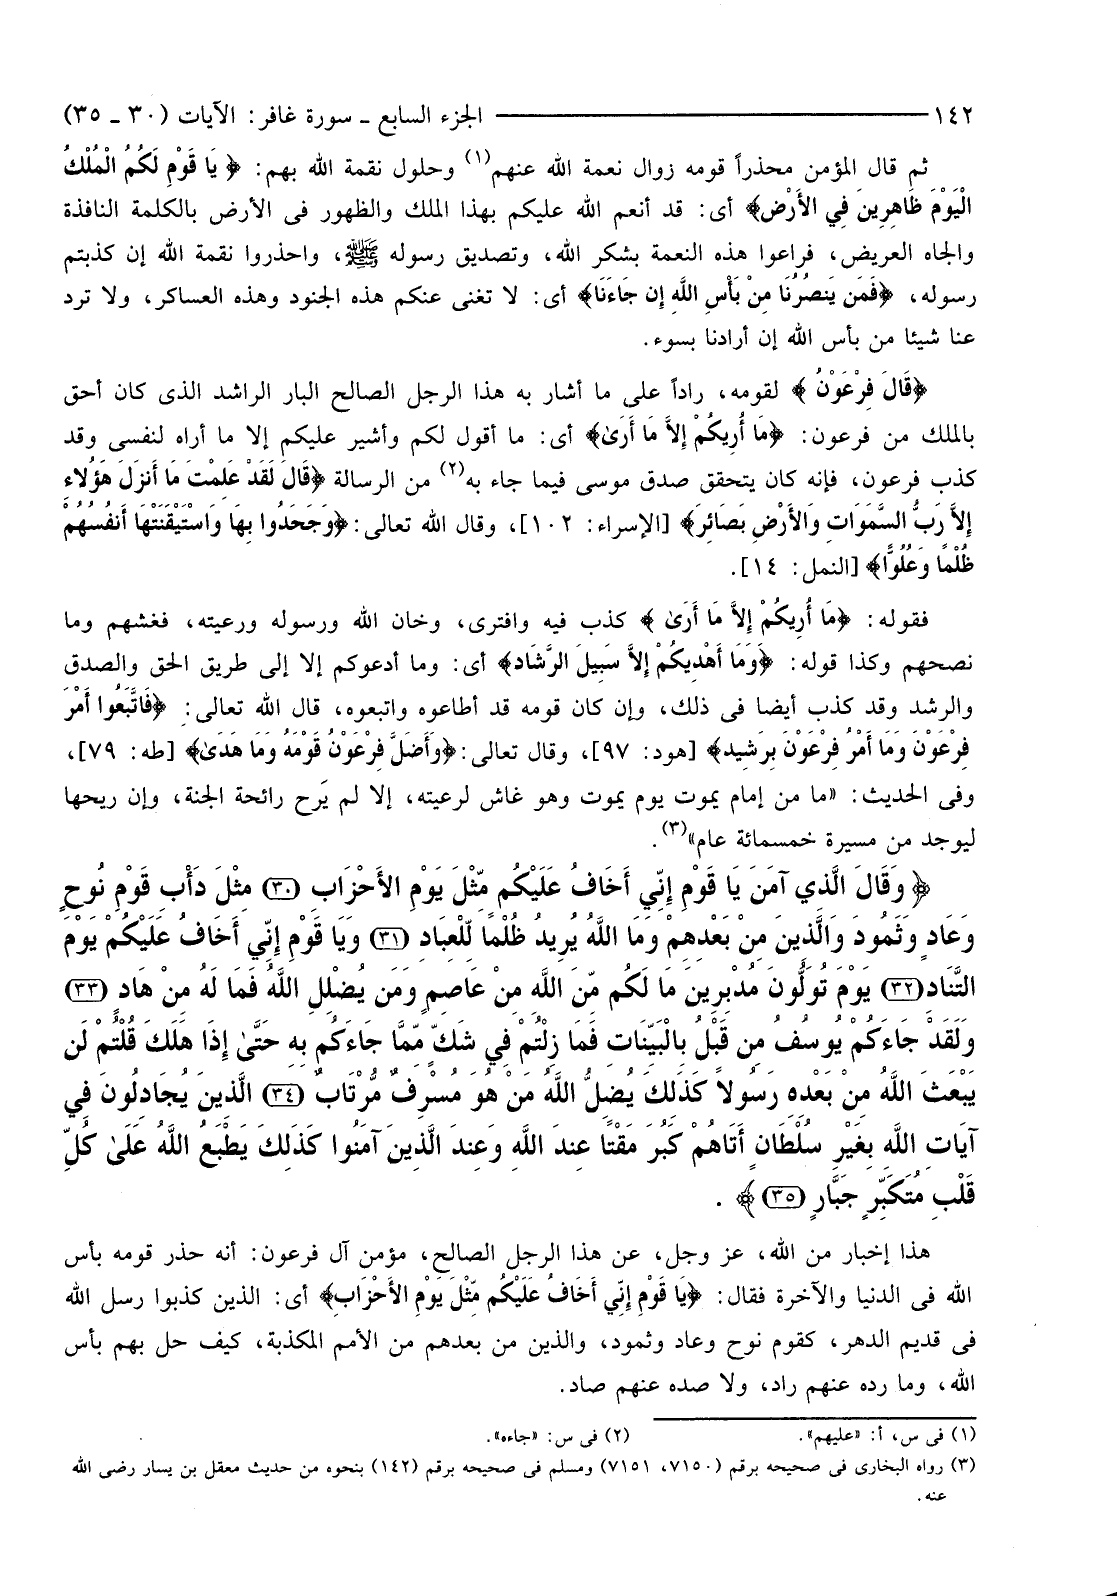 ١٤٢ ——— الجزء السابع ـ سورة غافر: الآيات (٣٠ ـ ٣٥)
ثم قال المؤمن محذراً قومه زوال نعمة الله عنهم(١) وحلول نقمة الله بهم: ﴿يَا قَوْمِ لَكُمُ الْمُلْكُ
الْيَوْمَ ظَاهِرِينَ فِي الأَرْضِ﴾ أى: قد أنعم الله عليكم بهذا الملك والظهور فى الأرض بالكلمة النافذة
والجاه العريض، فراعوا هذه النعمة بشكر الله، وتصديق رسوله ﷺ، واحذروا نقمة الله إن كذبتم
رسوله، ﴿فَمَن يَنصُرُنَا مِنْ بَأْسِ اللَّهِ إِن جَاءَنَا﴾ أى: لا تغنى عنكم هذه الجنود وهذه العساكر، ولا ترد
عنا شيئا من بأس الله إن أرادنا بسوء.
﴿قَالَ فِرْعَوْنُ﴾ لقومه، راداً على ما أشار به هذا الرجل الصالح البار الراشد الذى كان أحق
بالملك من فرعون: ﴿مَا أُرِيكُمْ إِلاَّ مَا أَرَىٰ﴾ أى: ما أقول لكم وأشير عليكم إلا ما أراه لنفسى وقد
كذب فرعون، فإنه كان يتحقق صدق موسى فيما جاء به(٢) من الرسالة ﴿قَالَ لَقَدْ عَلِمْتَ مَا أَنزَلَ هَؤُلاءِ
إِلاَّ رَبُّ السَّمَوَاتِ وَالأَرْضِ بَصَائِرَ﴾ [الإسراء: ١٠٢]، وقال الله تعالى: ﴿وَجَحَدُوا بِهَا وَاسْتَيْقَنَتْهَا أَنفُسُهُمْ
ظُلْمًا وَعُلُوًّا﴾ [النمل: ١٤].
فقوله: ﴿مَا أُرِيكُمْ إِلاَّ مَا أَرَىٰ﴾ كذب فيه وافترى، وخان الله ورسوله ورعيته، فغشهم وما
نصحهم وكذا قوله: ﴿وَمَا أَهْدِيكُمْ إِلاَّ سَبِيلَ الرَّشَادِ﴾ أى: وما أدعوكم إلا إلى طريق الحق والصدق
والرشد وقد كذب أيضا فى ذلك، وإن كان قومه قد أطاعوه واتبعوه، قال الله تعالى: ﴿فَاتَّبَعُوا أَمْرَ
فِرْعَوْنَ وَمَا أَمْرُ فِرْعَوْنَ بِرَشِيدٍ﴾ [هود: ٩٧]، وقال تعالى: ﴿وَأَضَلَّ فِرْعَوْنُ قَوْمَهُ وَمَا هَدَىٰ﴾ [طه: ٧٩]،
وفى الحديث: «ما من إمام يموت يوم يموت وهو غاش لرعيته، إلا لم يَرح رائحة الجنة، وإن ريحها
ليوجد من مسيرة خمسمائة عام»(٣).
﴿وَقَالَ الَّذِي آمَنَ يَا قَوْمِ إِنِّي أَخَافُ عَلَيْكُم مِّثْلَ يَوْمِ الأَحْزَابِ (٣٠) مِثْلَ دَأْبِ قَوْمِ نُوحٍ
وَعَادٍ وَثَمُودَ وَالَّذِينَ مِنْ بَعْدِهِمْ وَمَا اللَّهُ يُرِيدُ ظُلْمًا لِّلْعِبَادِ (٣١) وَيَا قَوْمِ إِنِّي أَخَافُ عَلَيْكُمْ يَوْمَ
التَّنَادِ (٣٢) يَوْمَ تُوَلُّونَ مُدْبِرِينَ مَا لَكُم مِّنَ اللَّهِ مِنْ عَاصِمٍ وَمَن يُضْلِلِ اللَّهُ فَمَا لَهُ مِنْ هَادٍ (٣٣)
وَلَقَدْ جَاءَكُمْ يُوسُفُ مِن قَبْلُ بِالْبَيِّنَاتِ فَمَا زِلْتُمْ فِي شَكٍّ مِّمَّا جَاءَكُم بِهِ حَتَّىٰ إِذَا هَلَكَ قُلْتُمْ لَن
يَبْعَثَ اللَّهُ مِنْ بَعْدِهِ رَسُولاً كَذَلِكَ يُضِلُّ اللَّهُ مَنْ هُوَ مُسْرِفٌ مُّرْتَابٌ (٣٤) الَّذِينَ يُجَادِلُونَ فِي
آيَاتِ اللَّهِ بِغَيْرِ سُلْطَانٍ أَتَاهُمْ كَبُرَ مَقْتًا عِندَ اللَّهِ وَعِندَ الَّذِينَ آمَنُوا كَذَلِكَ يَطْبَعُ اللَّهُ عَلَىٰ كُلِّ
قَلْبِ مُتَكَبِّرٍ جَبَّارٍ (٣٥)﴾ .
هذا إخبار من الله، عز وجل، عن هذا الرجل الصالح، مؤمن آل فرعون: أنه حذر قومه بأس
الله فى الدنيا والآخرة فقال: ﴿يَا قَوْمِ إِنِّي أَخَافُ عَلَيْكُم مِّثْلَ يَوْمِ الأَحْزَابِ﴾ أى: الذين كذبوا رسل الله
فى قديم الدهر، كقوم نوح وعاد وثمود، والذين من بعدهم من الأمم المكذبة، كيف حل بهم بأس
الله، وما رده عنهم راد، ولا صده عنهم صاد.
(١) فى س، أ: «عليهم». (٢) فى س: «جاءه».
(٣) رواه البخارى فى صحيحه برقم (٧١٥٠، ٧١٥١) ومسلم فى صحيحه برقم (١٤٢) بنحوه من حديث معقل بن يسار رضى الله
عنه.